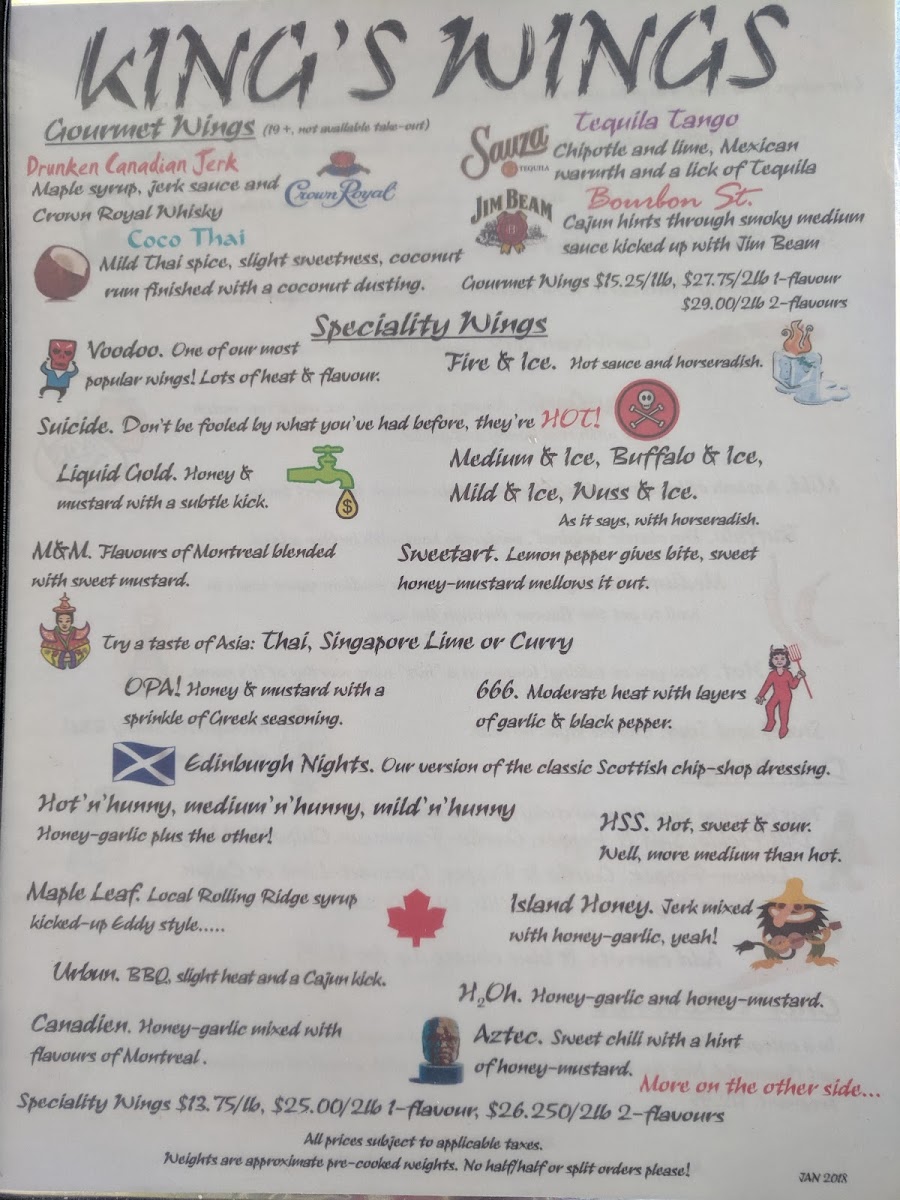 KING'S WINGS
Gourmet Wings (19+, not available take-out)
Drunken Canadian Jerk
Maple syrup, jerk sauce and
Crown Royal Whisky
Crown Royal
Coco Thai
Mild Thai spice, slight sweetness, coconut
rum finished with a coconut dusting.
Sauza
TEQUILA
Tequila Tango
Chipotle and lime, Mexican
warmth and a lick of Tequila
JIM BEAM
Bourbon St.
Cajun hints through smoky medium
sauce kicked up with Jim Beam
Gourmet Wings $15.25/1lb, $27.75/2lb 1-flavour
$29.00/2lb 2-flavours
Speciality Wings
Voodoo. One of our most
popular wings! Lots of heat & flavour.
Fire & Ice. Hot sauce and horseradish.
Suicide. Don't be fooled by what you've had before, they're HOT!
Liquid Gold. Honey &
mustard with a subtle kick.
$
Medium & Ice, Buffalo & Ice,
Mild & Ice, Wuss & Ice.
As it says, with horseradish.
M&M. Flavours of Montreal blended
with sweet mustard.
Sweetart. Lemon pepper gives bite, sweet
honey-mustard mellows it out.
Try a taste of Asia: Thai, Singapore Lime or Curry
OPA! Honey & mustard with a
sprinkle of Greek seasoning.
666. Moderate heat with layers
of garlic & black pepper.
Edinburgh Nights. Our version of the classic Scottish chip-shop dressing.
Hot'n'hunny, medium'n'hunny, mild'n'hunny
Honey-garlic plus the other!
HSS. Hot, sweet & sour.
Well, more medium than hot.
Maple Leaf. Local Rolling Ridge syrup
kicked-up Eddy style.....
Island Honey. Jerk mixed
with honey-garlic, yeah!
Urban. BBQ, slight heat and a Cajun kick.
H₂Oh. Honey-garlic and honey-mustard.
Canadien. Honey-garlic mixed with
flavours of Montreal.
Aztec. Sweet chili with a hint
of honey-mustard.
More on the other side...
Speciality Wings $13.75/lb, $25.00/2lb 1-flavour, $26.250/2lb 2-flavours
All prices subject to applicable taxes.
Weights are approximate pre-cooked weights. No half/half or split orders please!
JAN 2018